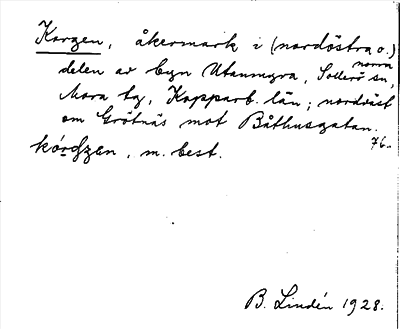 Korgen, åkermark i (nordöstra o.) norra
delen av byn Utanmyra, Sollerö sn,
Mora tg, Kopparb. län; nordväst
om Grötnäs mot Båthusgatan.
76.
m. best.
B. Lindén 1928.